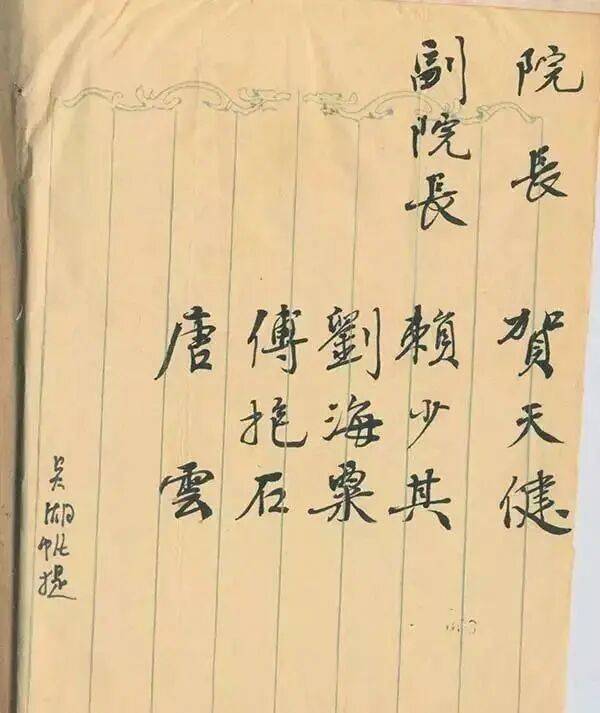 院長 賀天健
副院長 賴少其
劉海粟
傅抱石
唐雲
吴湖帆提